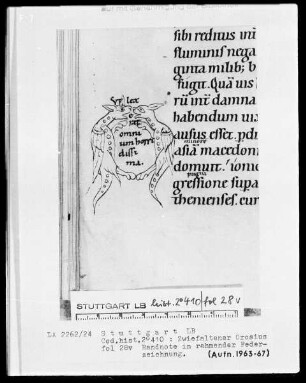 sibi reditus ini
fluminis nega
guita milib; b
fugit. Quā uis
rū int damna
habendum ui
ausus esset. pdi
minorē
asiā macedom
domuit. ionie
pugna
gressione supa
thenienses. cur
Syllex
erat
omni
um horri
dissi
ma.
STUTTGART LB hist. 2° 410 fol 28v
LA 2262/24 Stuttgart LB
Cod.hist.2°410 : Zwiefaltener Orosius
fol 28v Randnote in rahmender Feder-
zeichnung. (Aufn.1963-67)